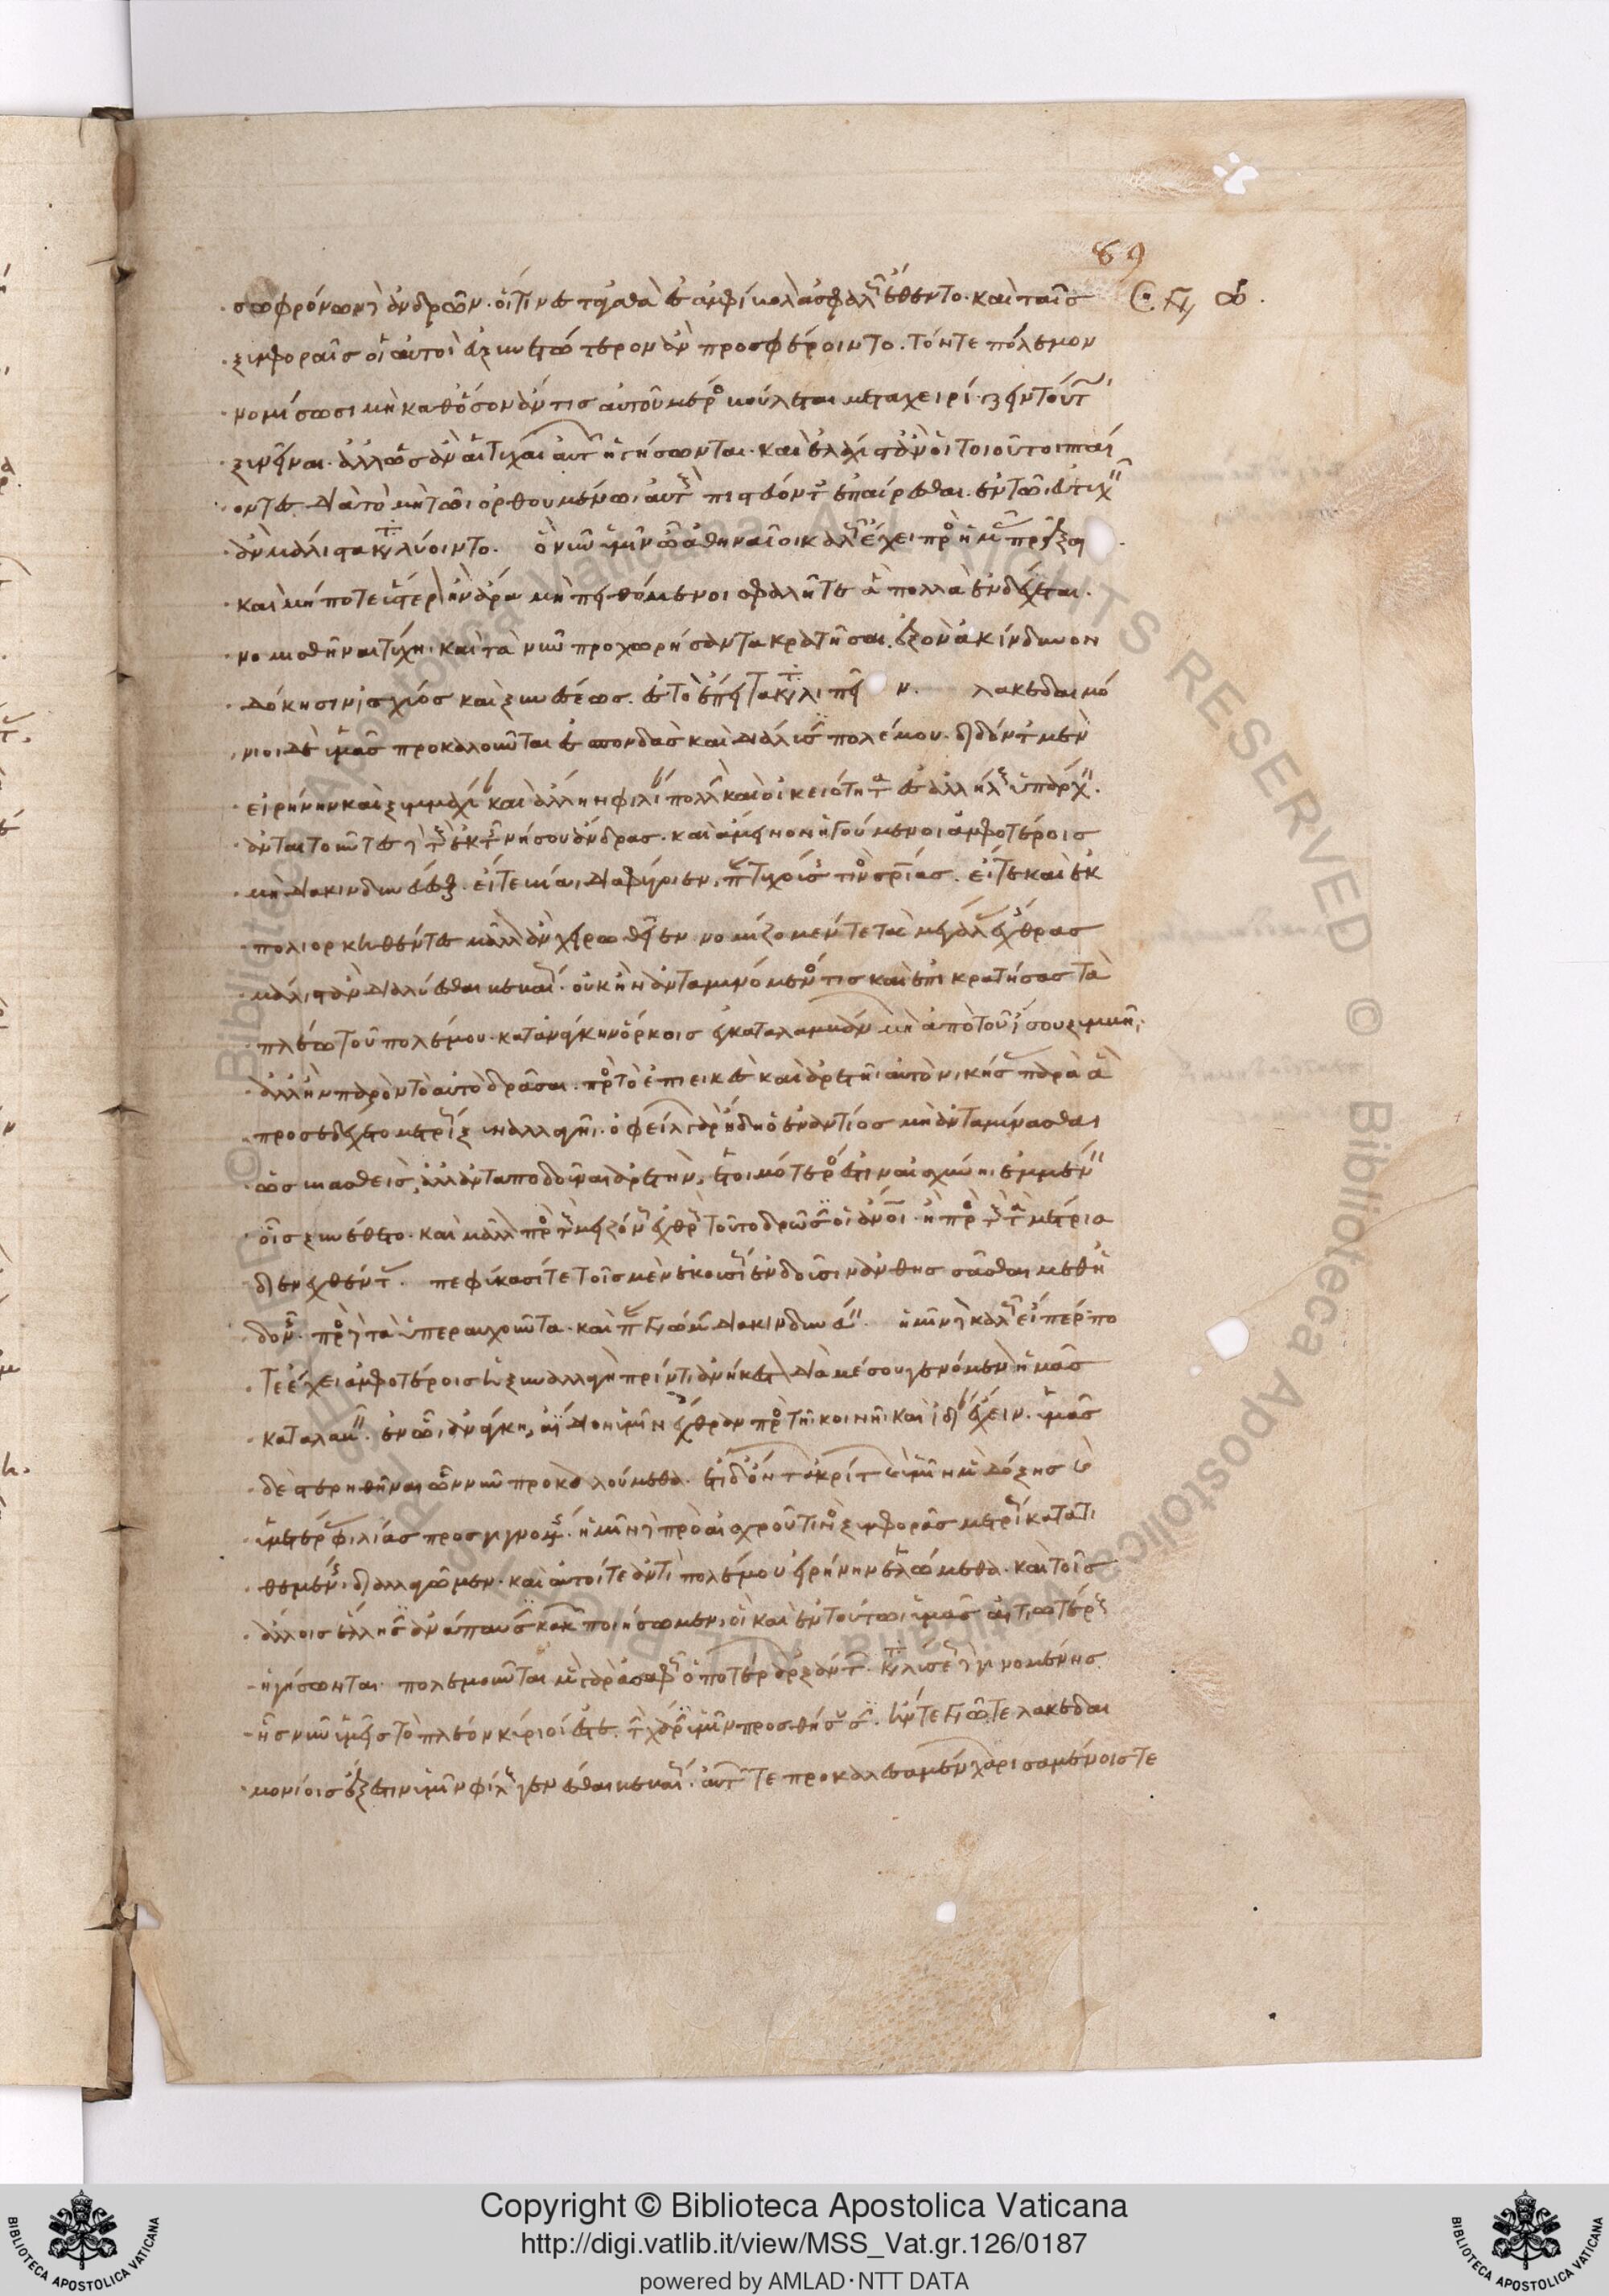 σωφρόνων δὲ ἀνδρῶν· οἵτινες τἀγαθὰ ἐς ἀμφίβολον ἀσφαλῶς ἔθεντο· καὶ ταῖς
ξυμφοραῖς οἱ αὐτοὶ εὐξυνετώτερον ἂν προσφέροιντο. τόν τε πόλεμον
νομίσωσι μὴ καθόσον ἄν τις αὐτοῦ μέρος βούληται μεταχειρίζειν τούτω
ξυνεῖναι. ἀλλ' ὡς ἂν αἱ τύχαι αὐτῶν ἡγήσωνται. καὶ ἐλάχιστ' ἂν οἱ τοιοῦτοι πταί
οντες διὰ τὸ μὴ τῶι ὀρθουμένωι αὐτοῦ πιστεύοντες ἐπαίρεσθαι. ἐν τῶι εὐτυχεῖν
ἂν μάλιστα καταλύοιντο. ὃ νῦν ὑμῖν ὦ ἀθηναῖοι καλῶς ἔχει πρὸς ἡμᾶς πρᾶξαι
καὶ μή ποτε ὕστερον ἢν ἄρα μὴ πειθόμενοι σφαλῆτε ἃ πολλὰ ἐνδέχεται.
νομισθῆναι τύχηι καὶ τὰ νῦν προχωρήσαντα κρατῆσαι. ἐξὸν ἀκίνδυνον
δόκησιν ἰσχύος καὶ ξυνέσεως. ἐς τὸ ἔπειτα καταλιπεῖν. λακεδαιμό
νιοι δὲ ὑμᾶς προκαλοῦνται ἐς σπονδὰς καὶ διάλυσιν πολέμου. διδόντες μὲν
εἰρήνην καὶ ξυμμαχίαν καὶ ἄλλην φιλίαν πολλὴν καὶ οἰκειότητα ἐς ἀλλήλους ὑπάρχειν.
ἀνταιτοῦντες δὲ τοὺς ἐκ τῆς νήσου ἄνδρας. καὶ ἄμεινον ἡγούμενοι ἀμφοτέροις
μὴ διακινδυνεύεσθαι. εἴτε βίαι διαφύγοιεν, παρατυχούσης τινὸς σωτηρίας. εἴτε καὶ ἐκ
πολιορκηθέντες μᾶλλον ἂν χειρωθεῖεν νομίζομέν τε τὰς μεγάλας ἔχθρας
μάλιστ' ἂν διαλύεσθαι βεβαίως. οὐκ ἢν ἀνταμυνόμενός τις καὶ ἐπικρατήσας τὰ
πλέω τοῦ πολέμου. κατ' ἀνάγκην ὅρκοις ἐγκαταλαμβάνων μὴ ἀπὸ τοῦ ἴσου ξυμβῆι.
ἀλλ' ἢν παρὸν τὸ αὐτὸ δρᾶσαι. πρὸς τὸ ἐπιεικὲς καὶ ἀρετῆι αὐτὸν νικήσας παρὰ ἃ
προσεδέχετο μετρίως ξυναλλαγῆι. ὀφείλων γὰρ ἤδη ὁ ἐναντίος μὴ ἀνταμύνασθαι
ὡς βιασθεὶς, ἀλλ' ἀνταποδοῦναι ἀρετὴν, ἑτοιμότερός ἐστιν αἰσχύνηι ἐμμένειν
οἷς ξυνέθετο. καὶ μᾶλλον πρὸς τοὺς μειζόνως ἐχθροὺς τοῦτο δρῶσιν οἱ ἄνθρωποι. ἢ πρὸς τοὺς τὰ μέτρια
διενεχθέντας. πεφύκασί τε τοῖς μὲν ἑκουσίως ἐνδοῦσιν ἀνθησσᾶσθαι μεθ' ἡ
δονῆς. πρὸς δὲ τὰ ὑπεραυχοῦντα. καὶ παρὰ γνώμην διακινδυνεύειν. ἡμῖν δὲ καλῶς εἴπερ πο
τε ἔχει ἀμφοτέροις ἡ ξυναλλαγὴ πρίν τι ἀνήκεστον διὰ μέσου γενόμενον ἡμᾶς
καταλαβεῖν. ἐν ὧι ἀνάγκη, ἀΐδιον ἡμῖν ἔχθραν πρὸς τῆι κοινῆι καὶ ἰδίαν ἔχειν. ὑμᾶς
δὲ στερηθῆναι ὧν νῦν προκαλούμεθα. ἔτι δ' ὄντων ἀκρίτων καὶ ὑμῖν μὲν δόξης καὶ
ἡμετέρας φιλίας προσγιγνομένης. ἡμῖν δὲ πρὸ αἰσχροῦ τινὸς ξυμφορᾶς μετρίως κατατι
θεμένης διαλλαγῶμεν. καὶ αὐτοί τε ἀντὶ πολέμου εἰρήνην ἑλώμεθα. καὶ τοῖς
ἄλλοις ἕλλησιν ἀνάπαυσιν κακῶν ποιήσωμεν. οἳ καὶ ἐν τούτωι ὑμᾶς αἰτιωτέρους
ἡγήσωνται. πολεμοῦνται μὲν γὰρ ἀσαφῶς ὁποτέρων ἀρξάντων. καταλύσεως δὲ γινομένης
ἧς νῦν ὑμεῖς τὸ πλέον κύριοί ἐστε. τὴν χάριν ὑμῖν προσθήσουσιν. ἤν τε γνῶτε λακεδαι
μονίοις ἔξεστιν ὑμῖν φίλους γενέσθαι βεβαίως. αὐτῶν τε προκαλεσαμένων χαρισαμένοις τε
69
Copyright © Biblioteca Apostolica Vaticana
http://digi.vatlib.it/view/MSS_Vat.gr.126/0187
powered by AMLAD·NTT DATA
BIBLIOTECA APOSTOLICA VATICANA
BIBLIOTECA APOSTOLICA VATICANA